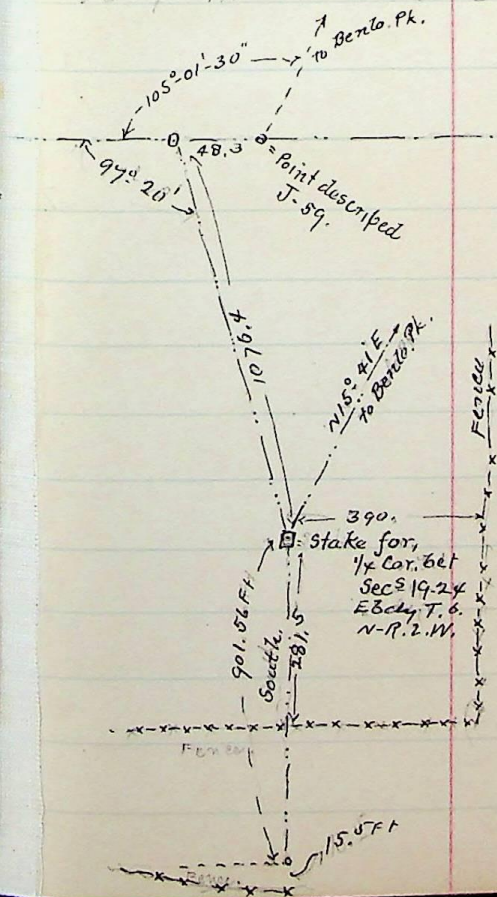 to Bento. Pk.
105°-01'-30"
48.3
97° 20'
= Point described
J-59.
1076.4
N15° 41' E
to Bento. Pk.
Fence
390.
Stake for,
1/4 Cor. bet
Secs 19-24
E Bdy T. 6.
N-R. 2. W.
901.56 Ft
South.
281.5
Fence
15.5 Ft
Fence.